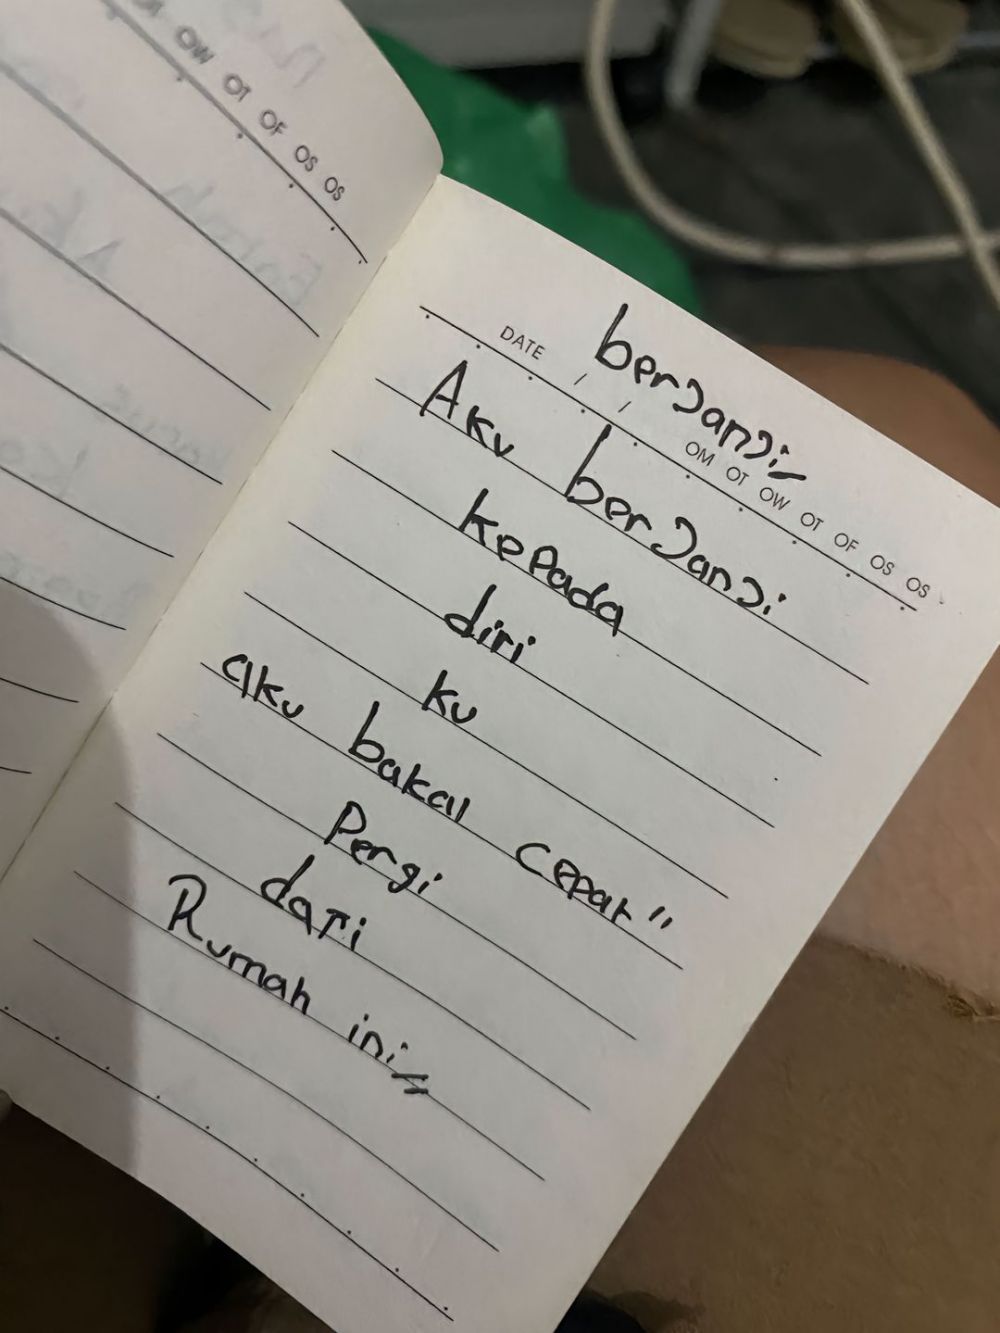 OW OT OF OS OS
berJanJi
DATE / /
OM OT OW OT OF OS OS
Aku berJanJi
kepada
diri
ku
aku bakal cepat"
Pergi
dari
Rumah ini